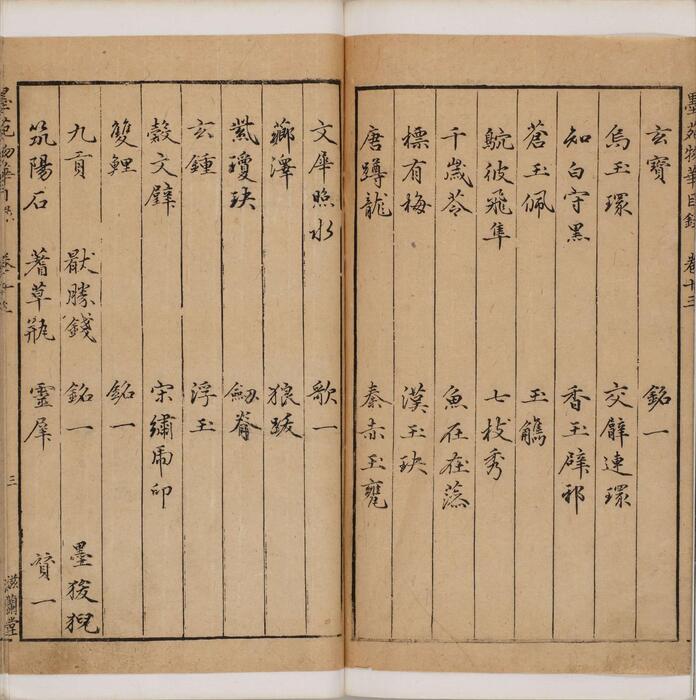 墨苑物華目錄 卷十三
玄寶 銘一
烏玉環 交臂連環
知白守黑 香玉辟邪
蒼玉佩 玉觿
鴥彼飛隼 七枝秀
千歲苓 魚在在藻
標有梅 漢玉玦
唐蹲龍 秦赤玉甕
文犀照水 歌一
薌澤 狼跋
紫瓊玦 劒脊
玄鍾 浮玉
穀文璧 宋繡虎印
雙鯉 銘一
九貢 厭勝錢 銘一 墨狻猊
筑陽石 蓍草瓶 靈犀 贊一
三
滋蘭堂